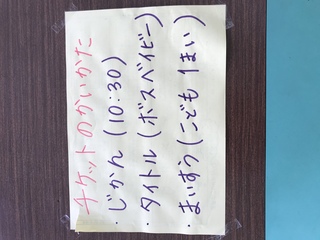 チケットのかいかた
・じかん(10:30)
・タイトル(ボスベイビー)
・まいすう(こども1まい)